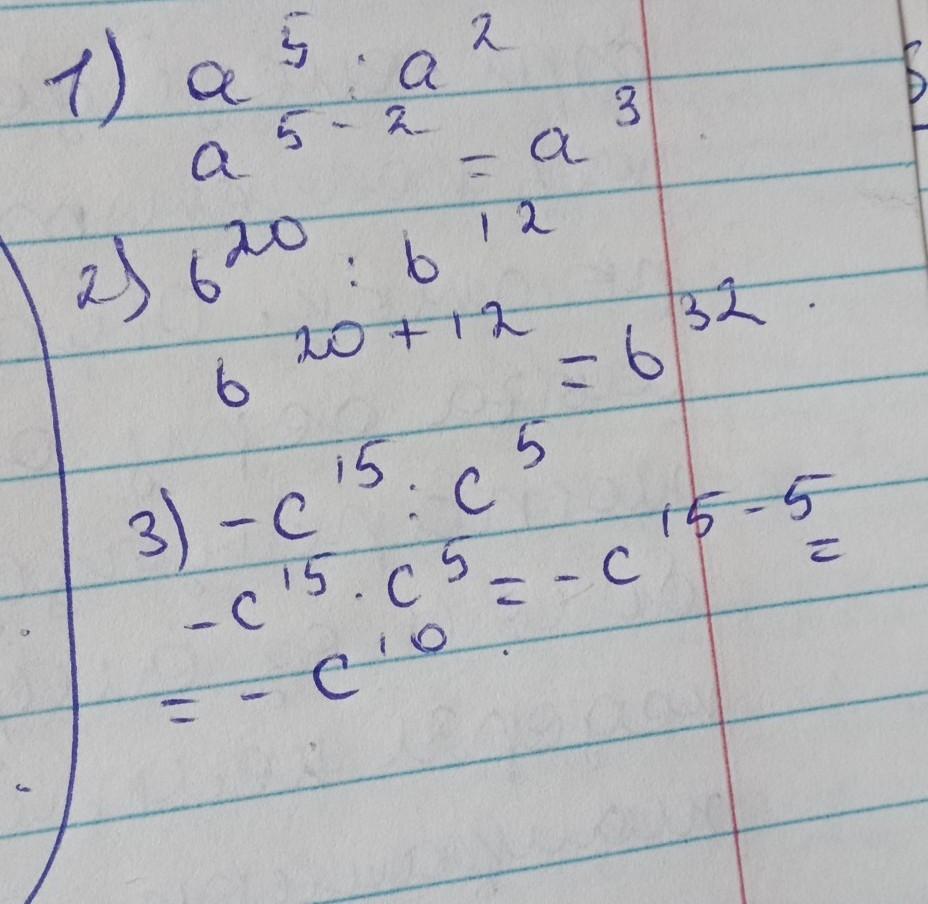 1) a⁵ : a²
a⁵⁻² = a³
2) b²⁰ : b¹²
b²⁰⁺¹² = b³² .
3) -c¹⁵ : c⁵
-c¹⁵ · c⁵ = -c¹⁵⁻⁵ =
= -c¹⁰ .